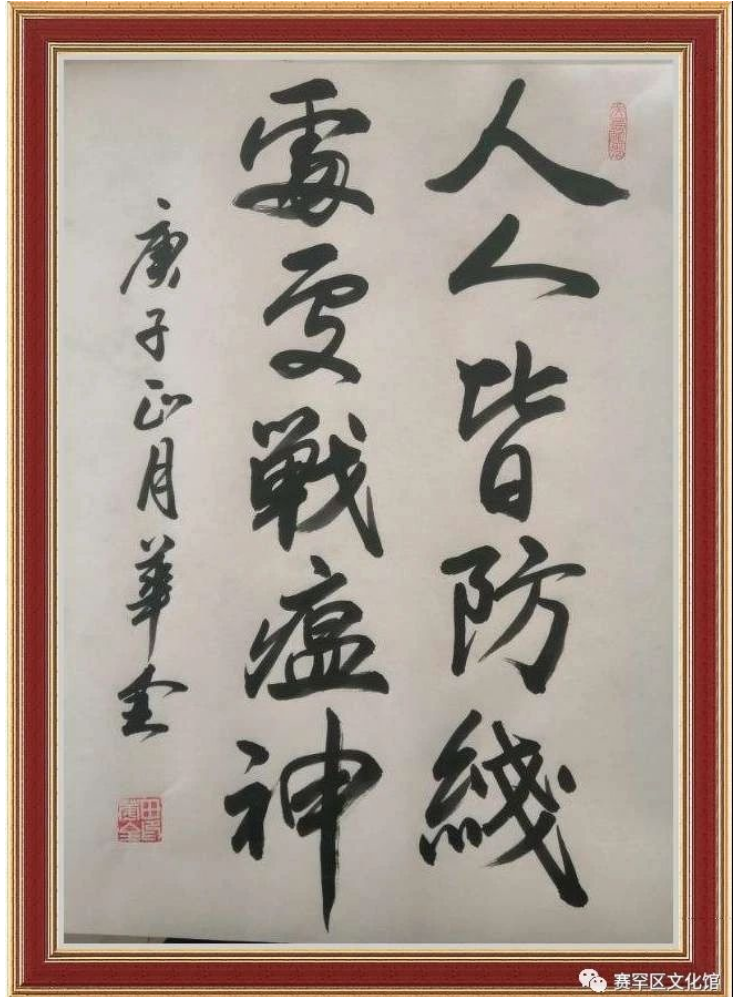 人人皆防綫
處處戰瘟神
庚子正月華金
赛罕区文化馆